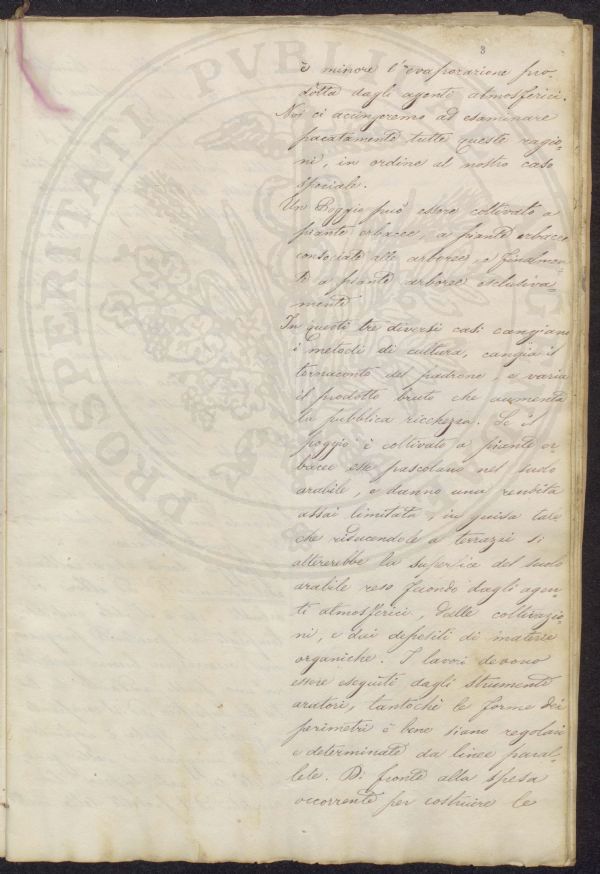 3
è minore l'evaporazione pro-
dotta dagli agenti atmosferici.
Noi ci acingeremo ad esaminare
pacatamente tutte queste ragio-
ni, in ordine al nostro caso
speciale.
Un Poggio può essere coltivato a
piante erbacee, a piante erbacee
consociate alle arboree, e finalmen-
te a piante arboree esclusiva-
mente
In questi tre diversi casi cangiano
i metodi di cultura, cangia il
tornaconto del padrone, e varia
il prodotto bruto che aumenta
la pubblica ricchezza. Se il
poggio è coltivato a piante er-
bacee esse pascolano nel suolo
arabile, e danno una rendita
assai limitata, in guisa tale
che riducendole a terrazzi si
altererebbe la superfice del suolo
arabile reso fecondo dagli agen-
ti atmosferici, dalle coltivazio-
ni, e dai depositi di materie
organiche. I lavori devono
essere eseguiti dagli strumenti
aratori, tantochè le forme dei
perimetri è bene siano regolari
e determinate da linee paral-
lele. Di fronte alla spesa
occorrente per costruire le
PROSPERITATI PVBLICAE